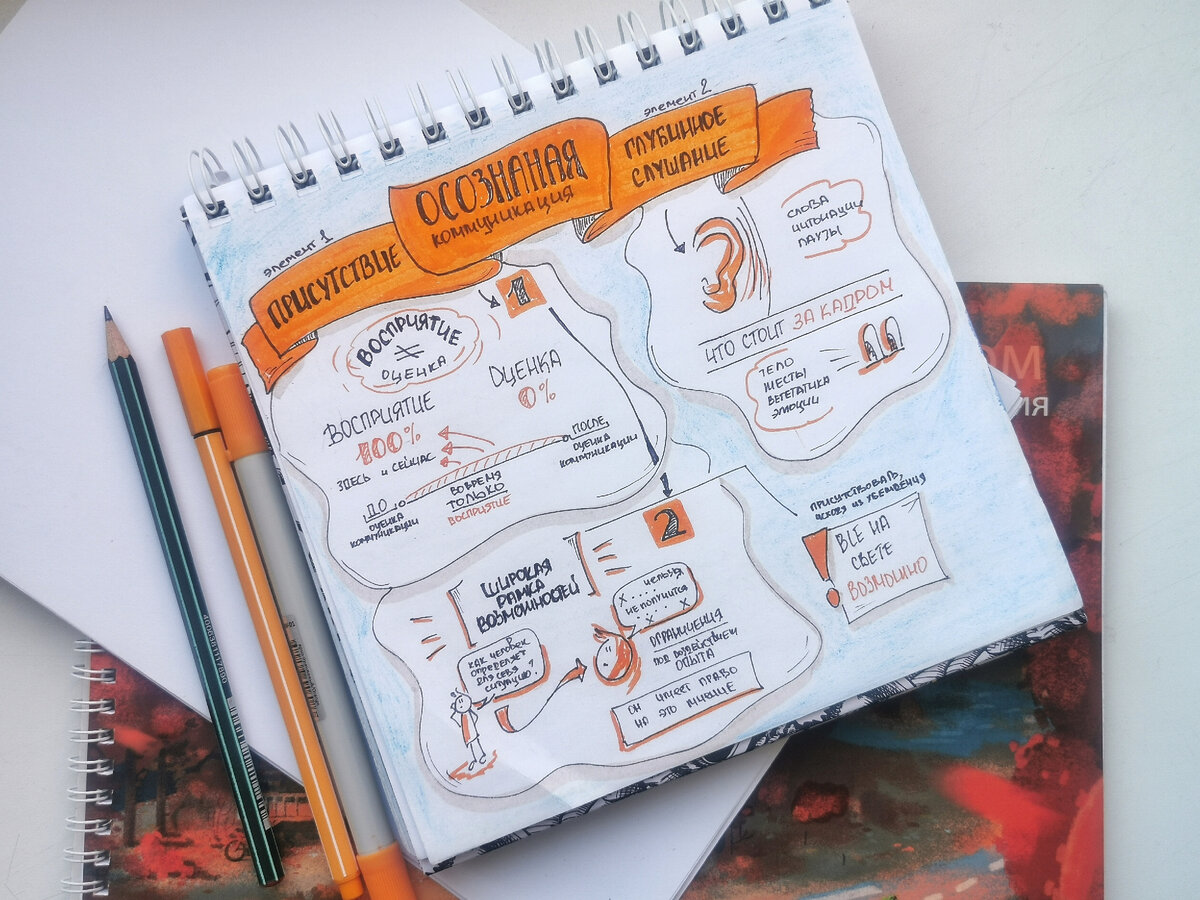 ОСОЗНАНАЯ
КОММУНИКАЦИЯ
элемент 1
ПРИСУТСТВИЕ
1
ВОСПРИЯТИЕ
≠
ОЦЕНКА
ВОСПРИЯТИЕ
100%
ЗДЕСЬ и СЕЙЧАС
ОЦЕНКА
0%
ДО
ОЦЕНКА
КОММУНИКАЦИИ
ВОВРЕМЯ
ТОЛЬКО
ВОСПРИЯТИЕ
ПОСЛЕ
ОЦЕНКА
КОММУНИКАЦИИ
элемент 2
ГЛУБИННОЕ
СЛУШАНИЕ
СЛОВА
ИНТОНАЦИИ
ПАУЗЫ
ЧТО СТОИТ ЗА КАДРОМ
ТЕЛО
ЖЕСТЫ
ВЕГЕТАТИКА
ЭМОЦИИ
2
ШИРОКАЯ
РАМКА
ВОЗМОЖНОСТЕЙ
КАК ЧЕЛОВЕК
ОПРЕДЕЛЯЕТ
ДЛЯ СЕБЯ
СИТУАЦИЮ?
НЕЛЬЗЯ
НЕ ПОЛУЧИТСЯ
ОГРАНИЧЕНИЯ
ПОД ВОЗДЕЙСТВИЕМ
ОПЫТА
ОН ИМЕЕТ ПРАВО
НА ЭТО МНЕНИЕ
ПРИСУТСТВОВАТЬ,
ИСХОДЯ ИЗ УБЕЖДЕНИЯ
!
ВСЁ НА
СВЕТЕ
ВОЗМОЖНО